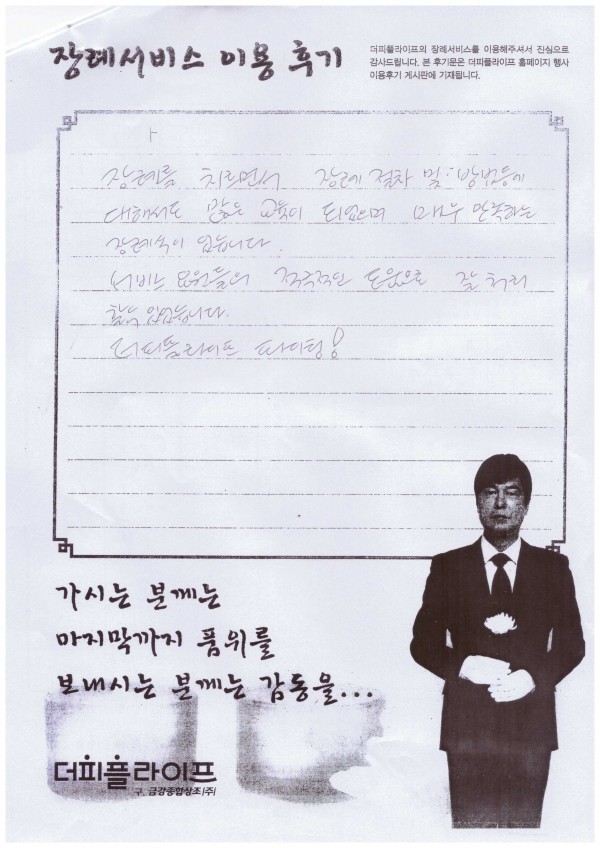 장례서비스 이용 후기
더피플라이프의 장례서비스를 이용해주셔서 진심으로
감사드립니다. 본 후기문은 더피플라이프 홈페이지 행사
이용후기 게시판에 기재됩니다.
장례를 치르면서 장례 절차 및 방법등에
대해서도 많은 교육이 되었으며 매우 만족하는
장례식이 었습니다.
서비스 요원들의 적극적인 도움으로 잘 처리
할수 있었습니다.
더피플라이프 파이팅!
가시는 분께는
마지막까지 품위를
보내시는 분께는 감동을...
더피플라이프
구. 금강종합상조(주)